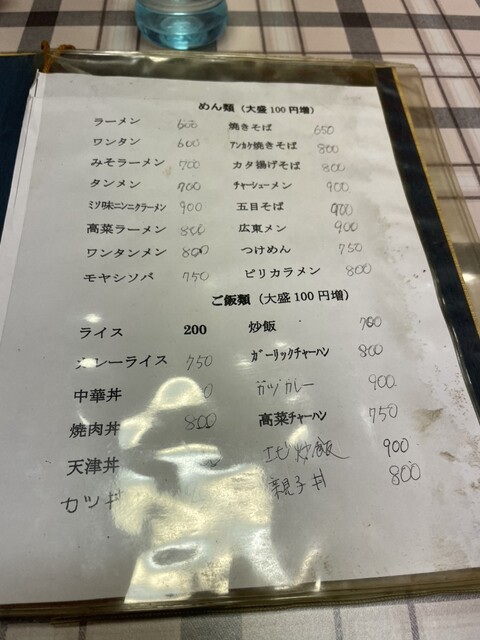 めん類（大盛100円増）
ラーメン 600 焼きそば 650
ワンタン 600 アンカケ焼きそば 800
みそラーメン 700 カタ揚げそば 800
タンメン 700 チャーシューメン 900
ミソ味ニンニクラーメン 900 五目そば 900
高菜ラーメン 800 広東メン 900
ワンタンメン 800 つけめん 750
モヤシソバ 750 ピリカラメン 800
ご飯類（大盛100円増）
ライス 200 炒飯 700
カレーライス 750 ガーリックチャーハン 800
中華丼 カツカレー 900
焼肉丼 800 高菜チャーハン 750
天津丼 エビ炒飯 900
カツ丼 親子丼 800